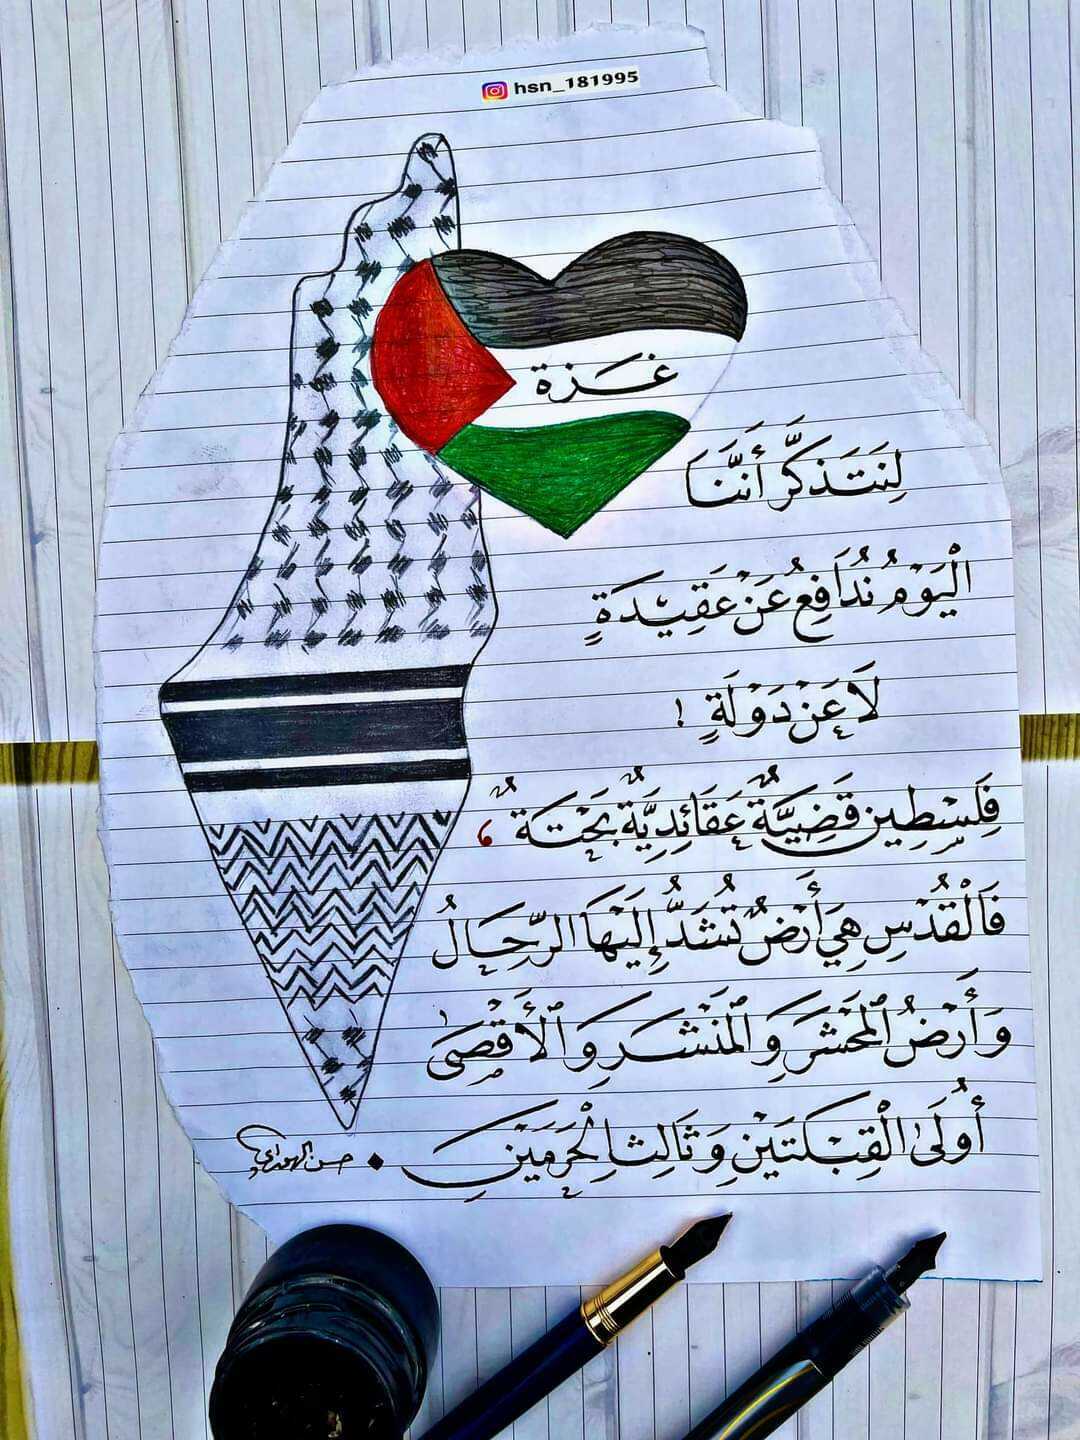 hsn_181995
غزة
لِنَتَذكَّرَ أَنَّنَا
الْيَوْمُ نُدَافِعُ عَنْ عَقِيْدَةٍ
لَا عَنْ دَوْلَةٍ !
فِلَسْطِين قَضِيَّةٌ عَقَائِدِيَّةٌ بَحْتَةٌ ،
فَالْقُدْسِ هِيَ أَرْضٌ تُشَدُّ إِلَيْهَا الرِّحَالُ
وَأَرْضُ ٱلمَحْشَرِ وَٱلمَنْشَرِ وَٱلأَقْصَىٰ
أُولَىٰ الْقِبْلَتَيْنِ وَثَالِثِ الْحَرَمَيْنِ